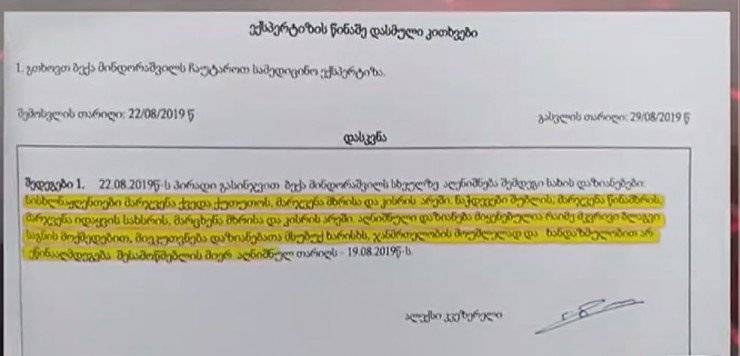 ექსპერტიზის წინაშე დასმული კითხვები
1. გთხოვთ ბექა მინდორაშვილს ჩაუტაროთ სამედიცინო ექსპერტიზა.
შემოსვლის თარიღი: 22/08/2019 წ
გასვლის თარიღი: 29/08/2019 წ
დასკვნა
შედეგები 1. 22.08.2019წ-ს პირადი გასინჯვით ბექა მინდორაშვილს სხეულზე აღენიშნება შემდეგი სახის დაზიანებები:
სისხლნაჟღენთები მარჯვენა ქვედა ქუთუთოს, მარჯვენა მხრისა და კისრის არეში. ნაჭდევები შუბლის, მარჯვენა წინამხრის,
მარჯვენა იდაყვის სახსრის, მარცხენა მხრისა და კისრის არეში. აღნიშნული დაზიანება მიყენებულია რაიმე მკვრივი ბლაგვი
საგნის მოქმედებით, მიეკუთვნება დაზიანებათა მსუბუქ ხარისხს, ჯანმრთელობის მოუშლელად და ხანდაზმულობით არ
ეწინააღმდეგება შესამოწმებლის მიერ აღნიშნულ თარიღს - 19.08.2019წ-ს.
ალექსი კვეზერელი